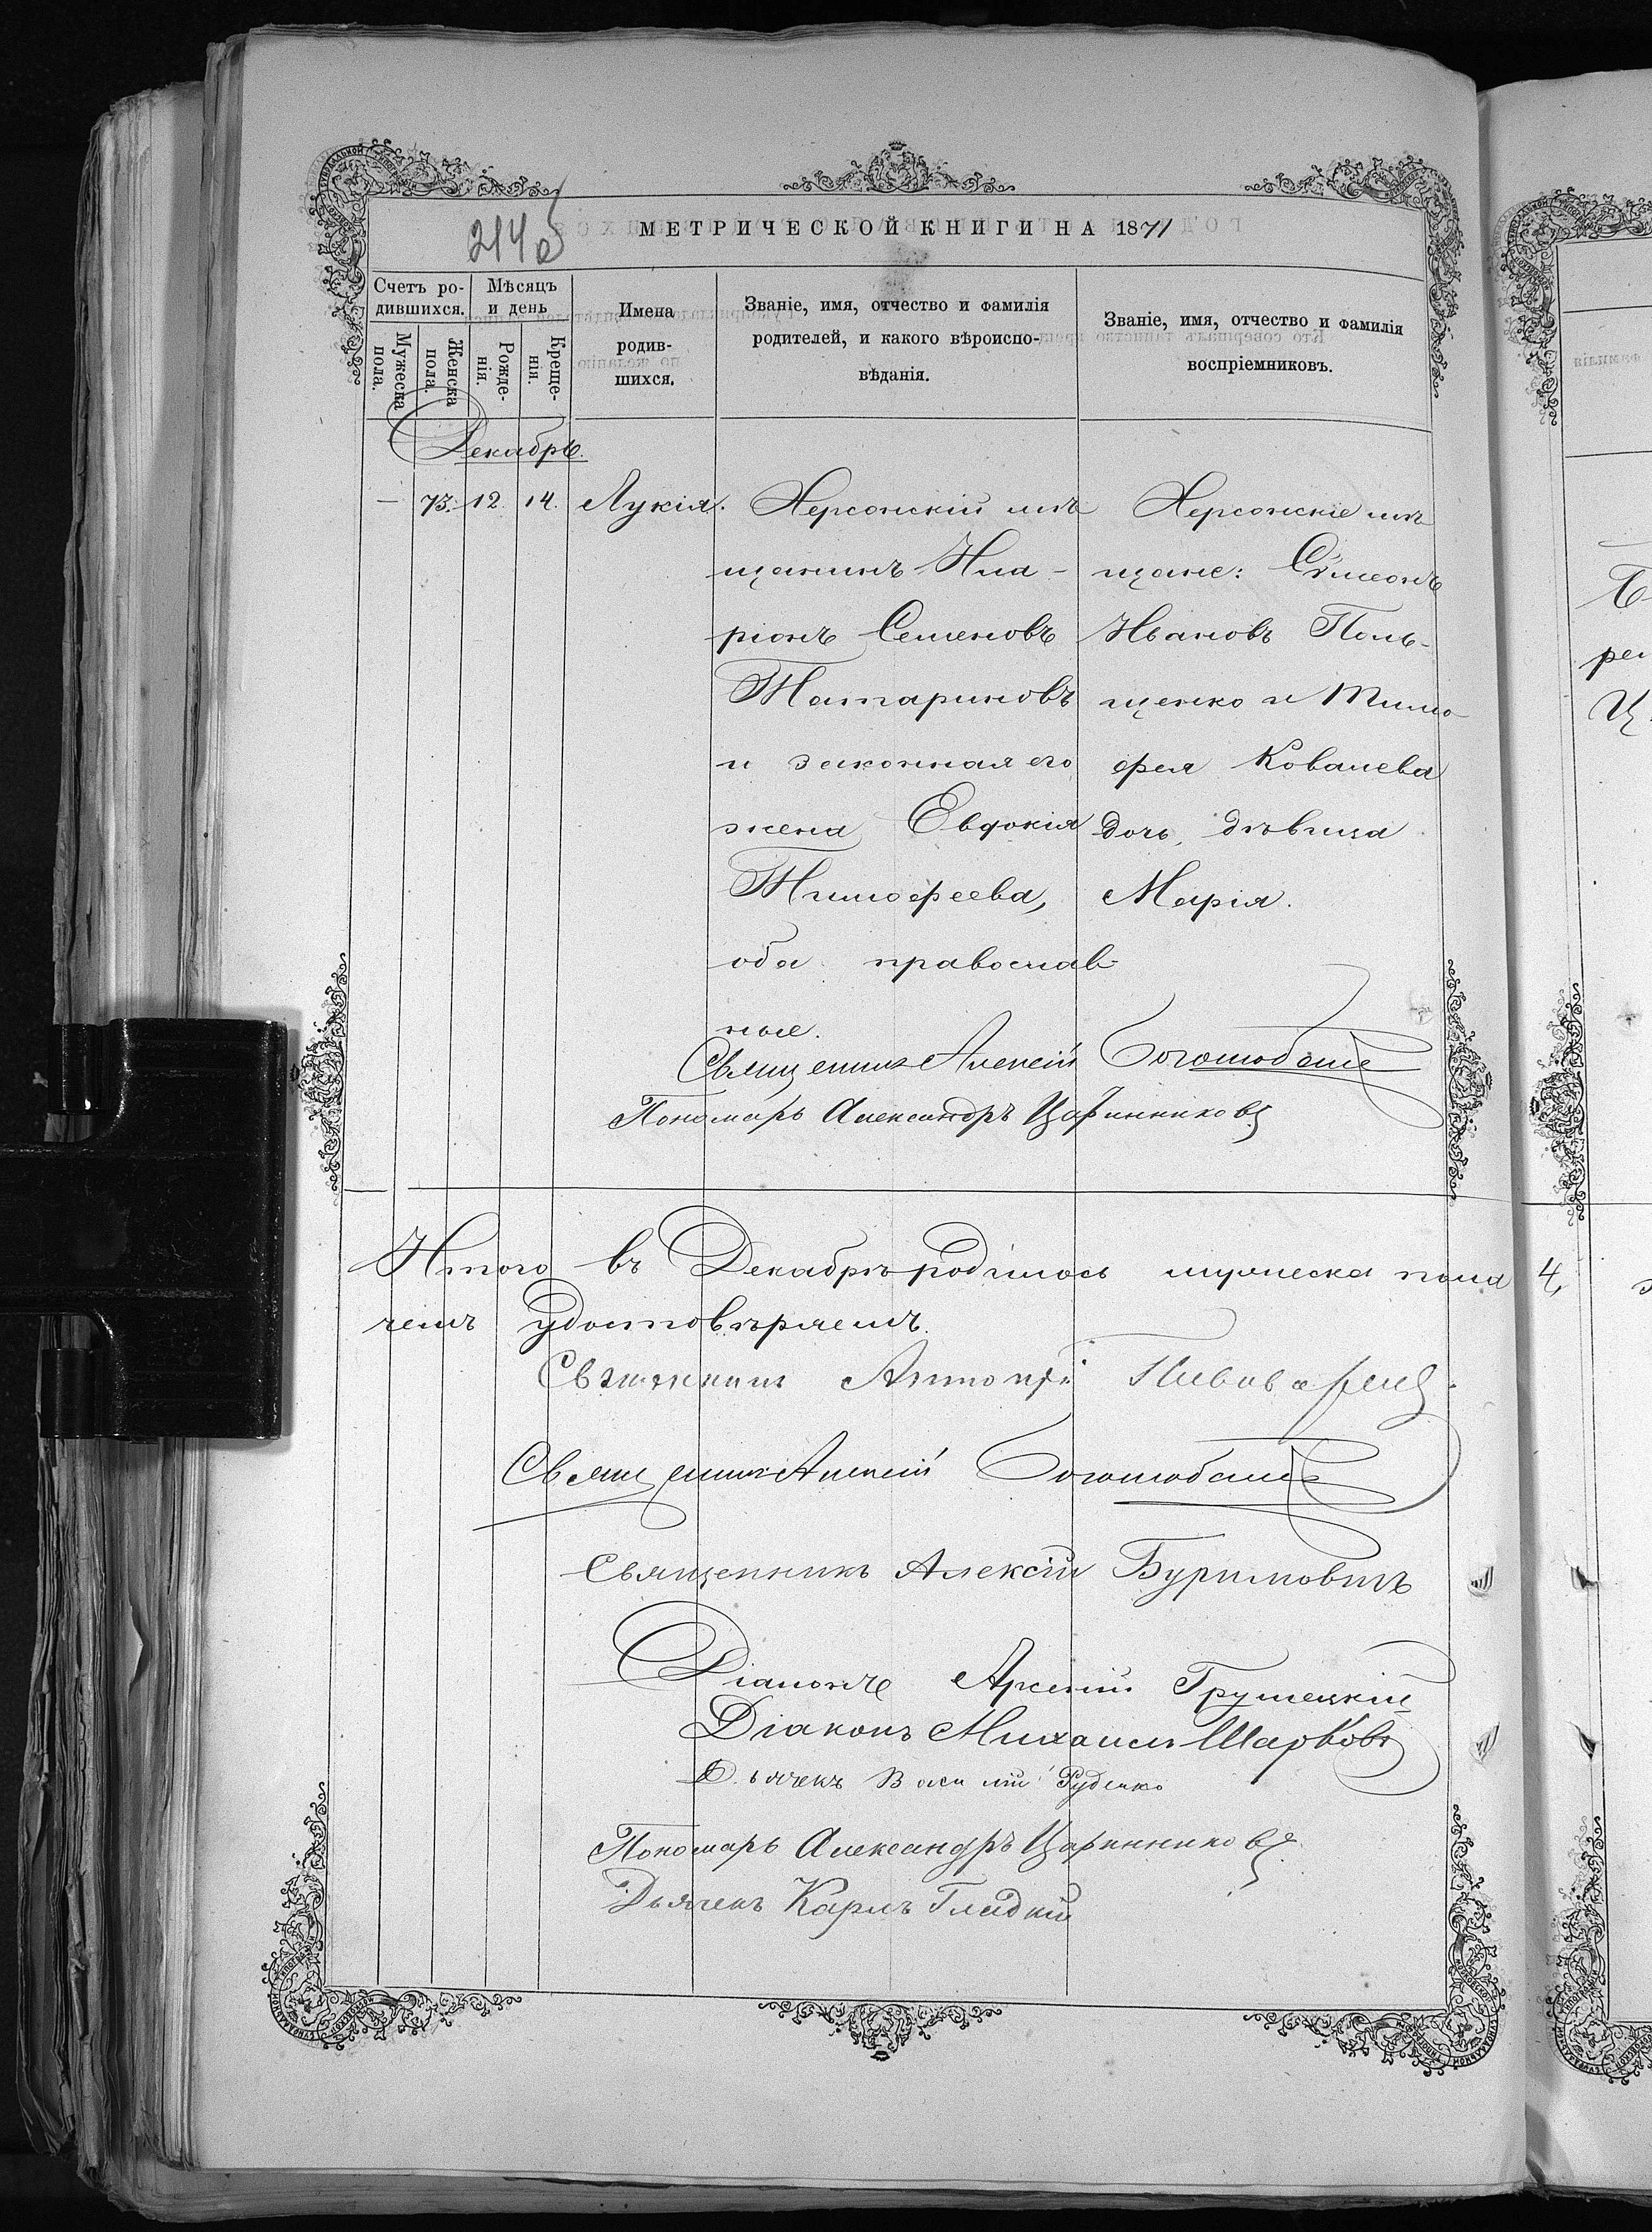 214 об
МЕТРИЧЕСКОЙ КНИГИ НА 1871
Счетъ ро-
дившихся.
Мѣсяцъ
и день
Мужеска
пола.
Женска
пола.
Рожде-
нія.
Креще-
нія.
Имена
родив-
шихся.
Званіе, имя, отчество и фамилія
родителей, и какого вѣроиспо-
вѣданія.
Званіе, имя, отчество и фамилія
воспріемниковъ.
Декабрь.
— 73. 12. 14. Лукія.
Херсонскій мѣ
щанинъ Ила-
ріонъ Семеновъ
Татариновъ
и законная его
жена Евдокія
Тимофеева,
оба православ
ные.
Херсонскіе мѣ
щане: Сѵмеонъ
Ивановъ Поль-
щенко и Тимо
фея Ковалева
дочь, дѣвица
Марія.
Священникъ Алексій Боголюбовъ
Пономарь Александръ Царинниковъ
Итого въ Декабрѣ родилось мужеска пола 4,
чемъ удостовѣряемъ.
Священникъ Антоній Пивоваровъ
Священникъ Алексій Боголюбовъ
Священникъ Алексій Буримовичъ
Діаконъ Арсеній Грушецкій
Діаконъ Михаилъ Шарковъ
Дьячекъ Василій Руденко
Пономарь Александръ Царинниковъ
Дьячекъ Карпъ Гладкій